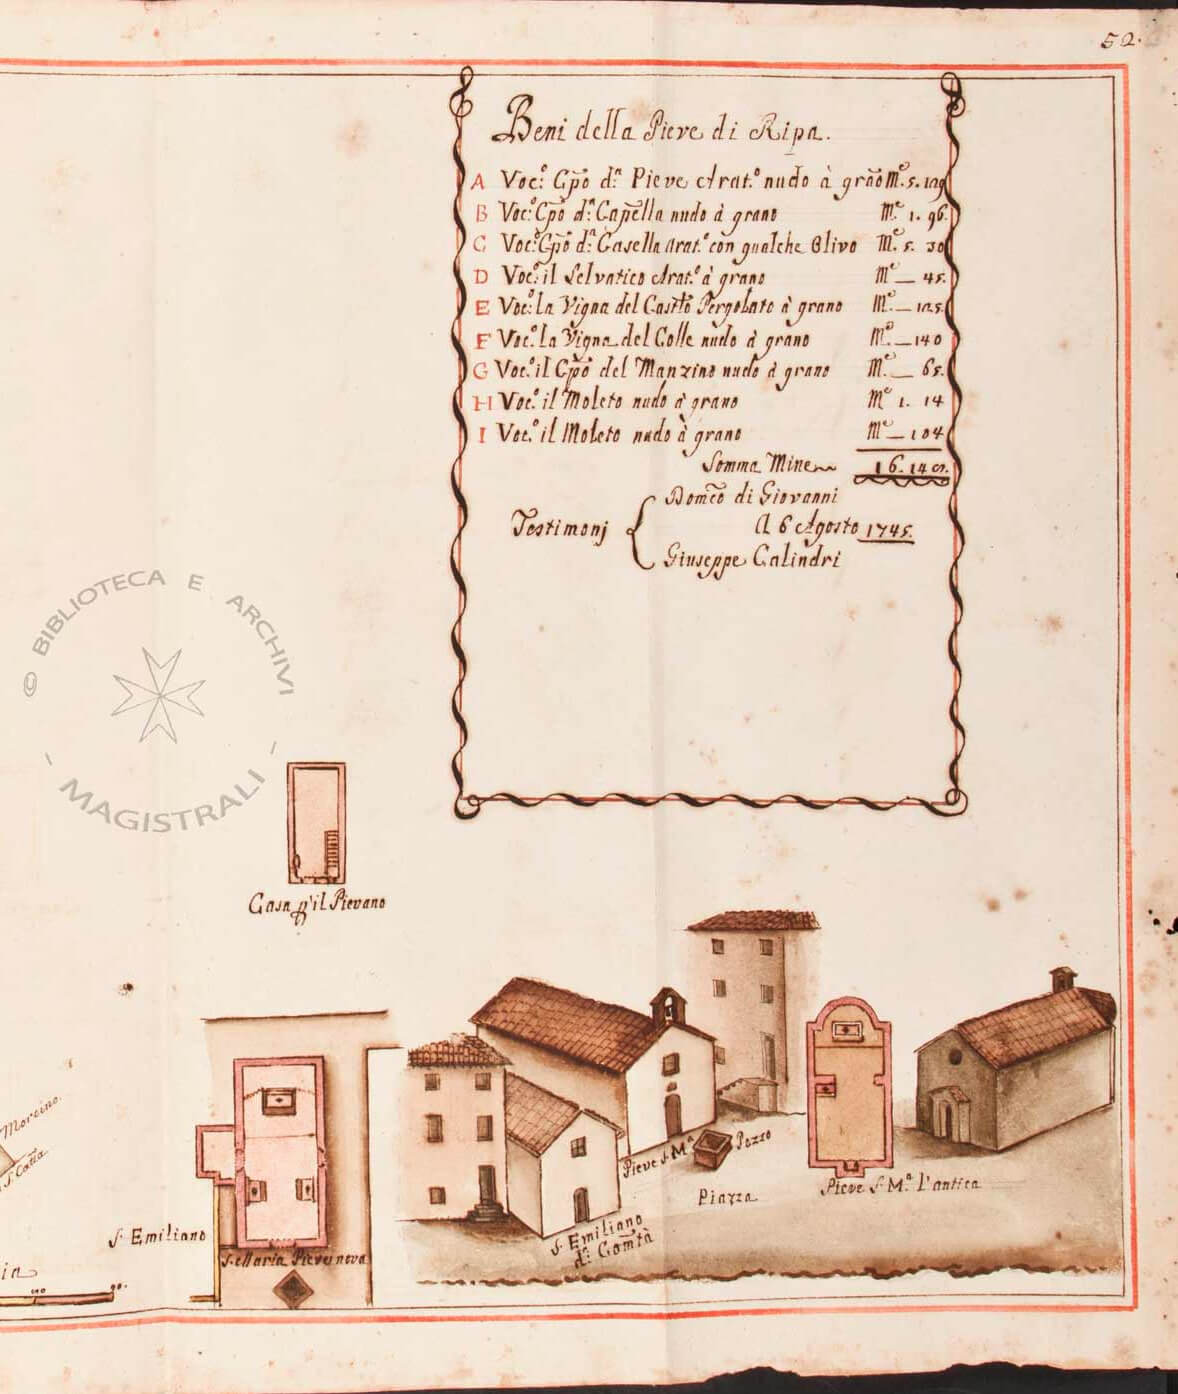 52.
Beni della Pieve di Ripa.
A Voc.º Cpõ d.ª Pieve Arat.º nudo à grão M.e 5. 109
B Voc.º Cpõ d.ª Capella nudo à grano M.e 1. 96.
C Voc.º Cpõ d.ª Casella Arat.º con qualche Olivo M.e 5. 30
D Voc.º il Selvatico Arat.º à grano M.e — 45.
E Voc.º la Vigna del Castro Pergolato à grano M.e — 125.
F Voc.º la Vigna del Colle nudo à grano M.e — 140
G Voc.º il Cpõ del Manzino nudo à grano M.e — 65.
H Voc.º il Moleto nudo à grano M.e 1. 14
I Voc.º il Moleto nudo à grano M.e — 104
Somma Mine 16.
Domco di Giovanni
Testimonj A 6 Agosto 1745.
Giuseppe Calindri
© BIBLIOTECA E ARCHIVI
- MAGISTRALI -
Casa p'il Pievano
Morcino.
S. Catta
S. Emiliano
S. Maria Pieve nova
Pieve S. M.ª
Pozzo
Piazza
S. Emiliano
d.ª Gomtà
Pieve S. M.ª l'antica